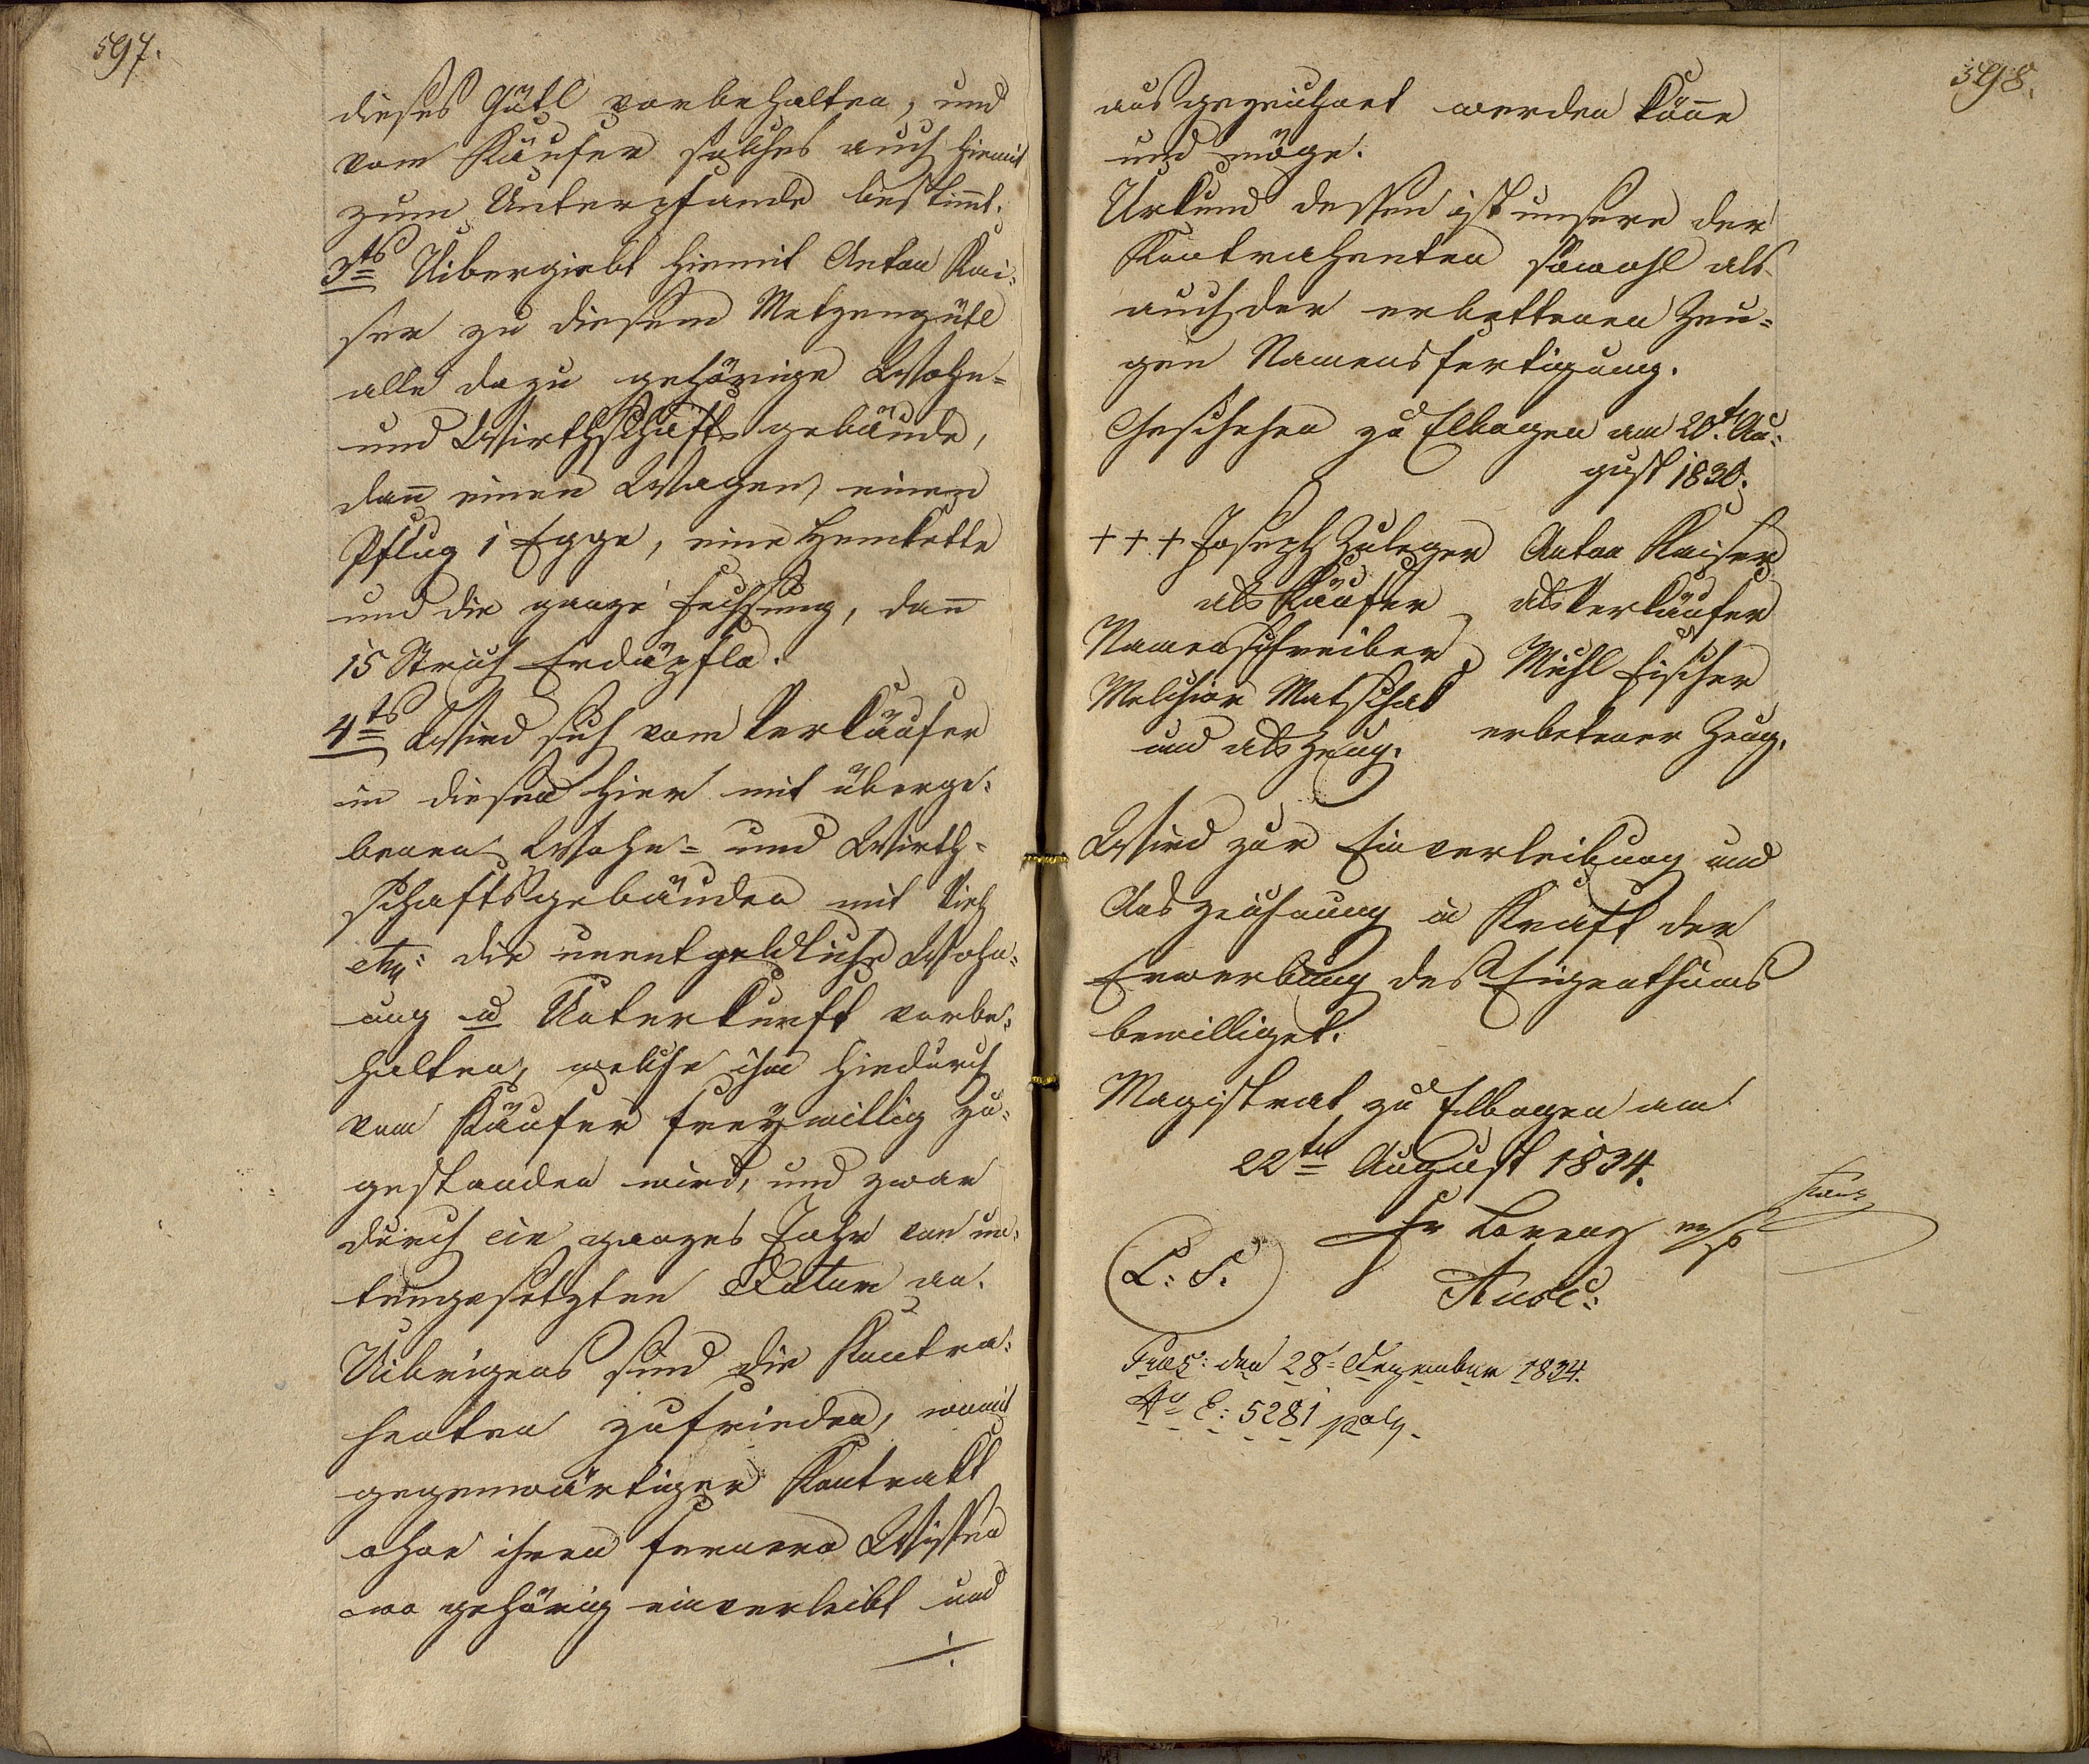 597.
dieses Gütl vorbehalten, und
vom Käufer solches auch hiemit
zum Unterpfande bestim̄t.
3ts Uibergiebt hiemit Anton Kai-
ser zu diesem Metzengütl
alle dazu gehörige Wohn-
und Wirthschaftsgebäude,
dan̄ einen Wagen, einen
Pflug 1 Egge, eine Hemkette
und die ganze Fechsung, dan̄
15 Strich Erdäpfla.
4ts Wird sich vom Verkäufer
in diesen hier mit überge-
benen Wohn- und Wirth-
schaftsgebäuden mit Vieh
etc: die unentgeldliche Wohn-
ung u Unterkunft vorbe-
halten, welche ihm hiedurch
vom Käufer freywillig zu-
gestanden wird, und zwar
durch ein ganzes Jahr von un-
tengesetzten Datum an.
Uibrigens sind die Kontra-
henten zufrieden, womit
gegenwärtiger Kontrakt
ohne ihren fernern Wissen
wo gehörig einverleibt und
./.
598.
ausgezeichnet werden kön̄e
und möge.
Urkund dessen ist unsere der
Kontrahenten sowohl als
auch der erbettenen Zeu-
gen Namensfertigung.
Geschehen zu Elbogen am 20t. Au-
gust 1830.
+++ Joseph Zuleger Anton Kaiser
als Käufer als Verkäufer
Namensschreiber Michl Fischer
Melchior Matschak
und als Zeug. erbetener Zeug.
Wird zur Einverleibung und
Auszeichnung in Kraft der
Erwerbung des Eigenthums
bewilliget.
Magistrat zu Elbogen am
22ten August 1834.
Fr Lorenz mp
L: S.
Ausc:
Praes: den 28= Dezember 1834.
No E: 5281 polg.